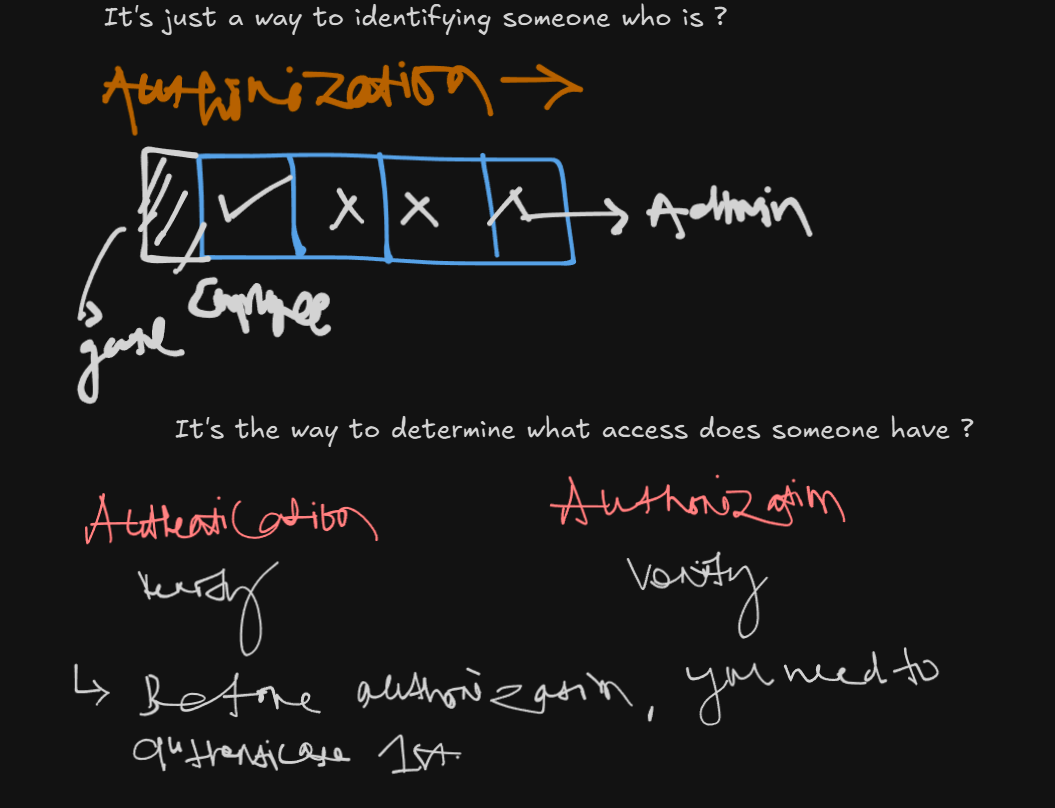 It's just a way to identifying someone who is ?
Authorization →
Admin
Employee
It's the way to determine what access does someone have ?
Authentication Authorization
verify verify
↳ Before authorization, you need to
authenticate 1st.